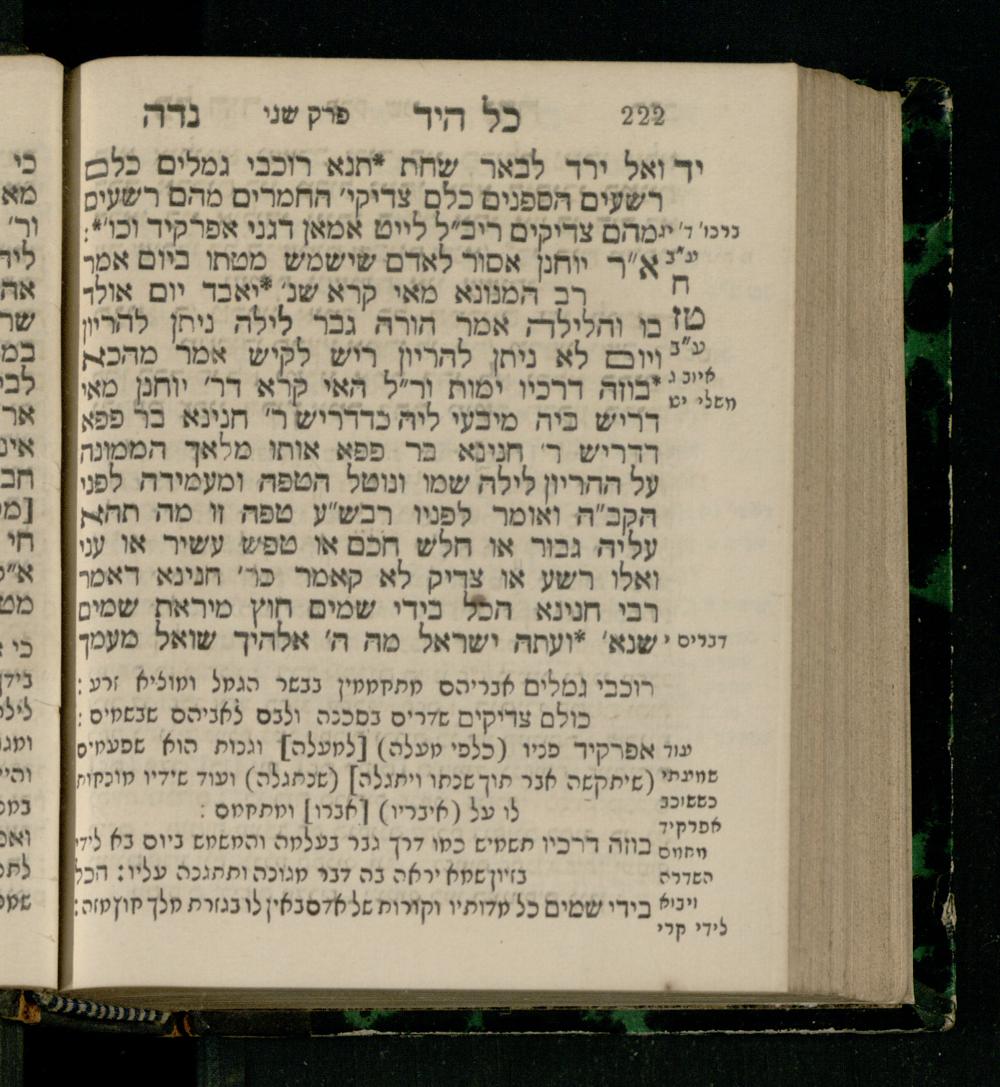 222 כל היד פרק שני נדה
יד ואל ירד לבאר שחת *תנא רוכבי גמלים כלם
רשעים הספנים כלם צדיקי׳ החמרים מהם רשעים
מהם צדיקים ריב״ל לייט אמאן דגני אפרקיד וכו׳*:
א״ר יוחנן אסור לאדם שישמש מטתו ביום אמר
רב המנונא מאי קרא שנ׳ *יאבד יום אולד
בו והלילה אמר הורה גבר לילה ניתן להריון
ויום לא ניתן להריון ריש לקיש אמר מהכא
*בוזה דרכיו ימות ור״ל האי קרא דר׳ יוחנן מאי
דריש ביה מיבעי ליה כדדריש ר׳ חנינא בר פפא
דדריש ר׳ חנינא בר פפא אותו מלאך הממונה
על ההריון לילה שמו ונוטל הטפה ומעמידה לפני
הקב״ה ואומר לפניו רבש״ע טפה זו מה תהא
עליה גבור או חלש חכם או טפש עשיר או עני
ואלו רשע או צדיק לא קאמר כר׳ חנינא דאמר
רבי חנינא הכל בידי שמים חוץ מיראת שמים
שנא׳ *ועתה ישראל מה ה׳ אלהיך שואל מעמך
ע״ב
ח
טז
ע״ב
איוב ג
משלי יט
דברים י
רוכבי גמלים אבריהם מתחממין בבשר הגמל ומוציא זרע:
כולם צדיקים שדרים בסכנה ולבם לאביהם שבשמים:
אפרקיד פניו (כלפי מעלה) [למעלה] וגנות הוא שפעמים
(שיתקשה אבר תוך שנתו ויתגלה] (שנתגלה) ועוד שידיו מונחות
לו על (איבריו) [אברו] ומתחמם:
בוזה דרכיו תשמיש כמו דרך גבר בעלמה והמשמש ביום בא לידי
בזיון שמא יראה בה דבר מגונה ותתגנה עליו: הכל
בידי שמים כל מדותיו וקורות של אדם באין לו בגזרת מלך חוץ מזה:
עוד
שמיגתי
כששוכב
אפרקיד
מחמם
השדרה
ויבוא
לידי קרי